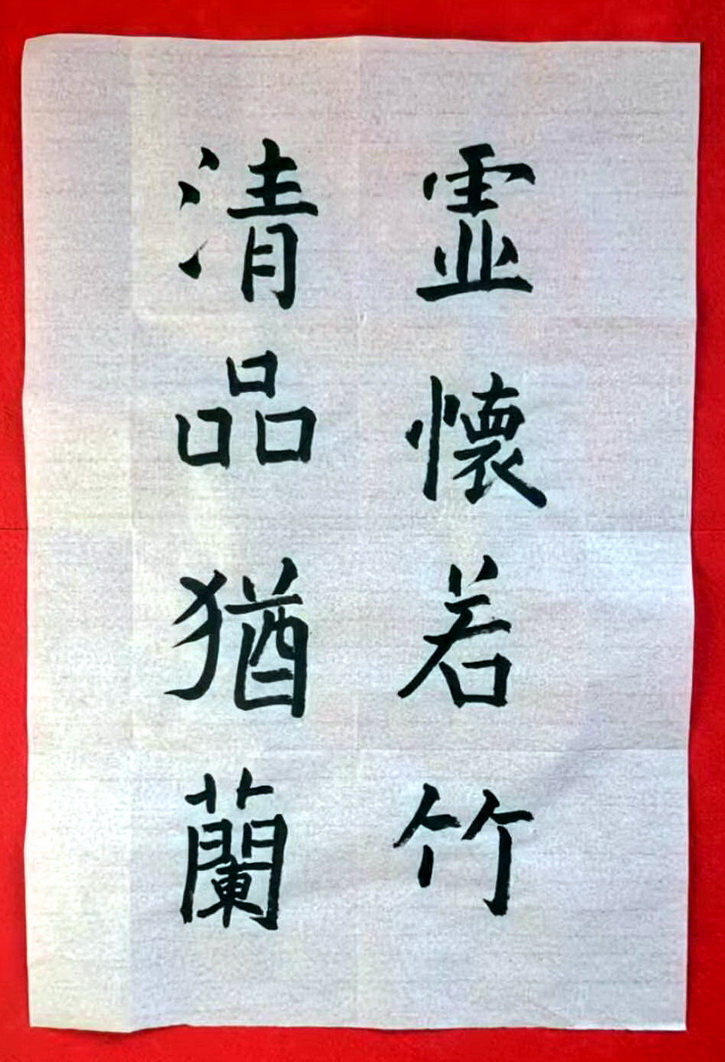 虛懷若竹
清品猶蘭